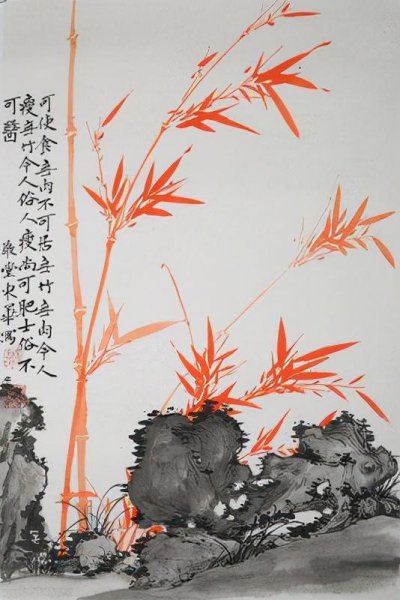 可使食無肉不可居無竹無肉令人
瘦無竹令人俗人瘦尚可肥士俗不
可醫
堂東華寫